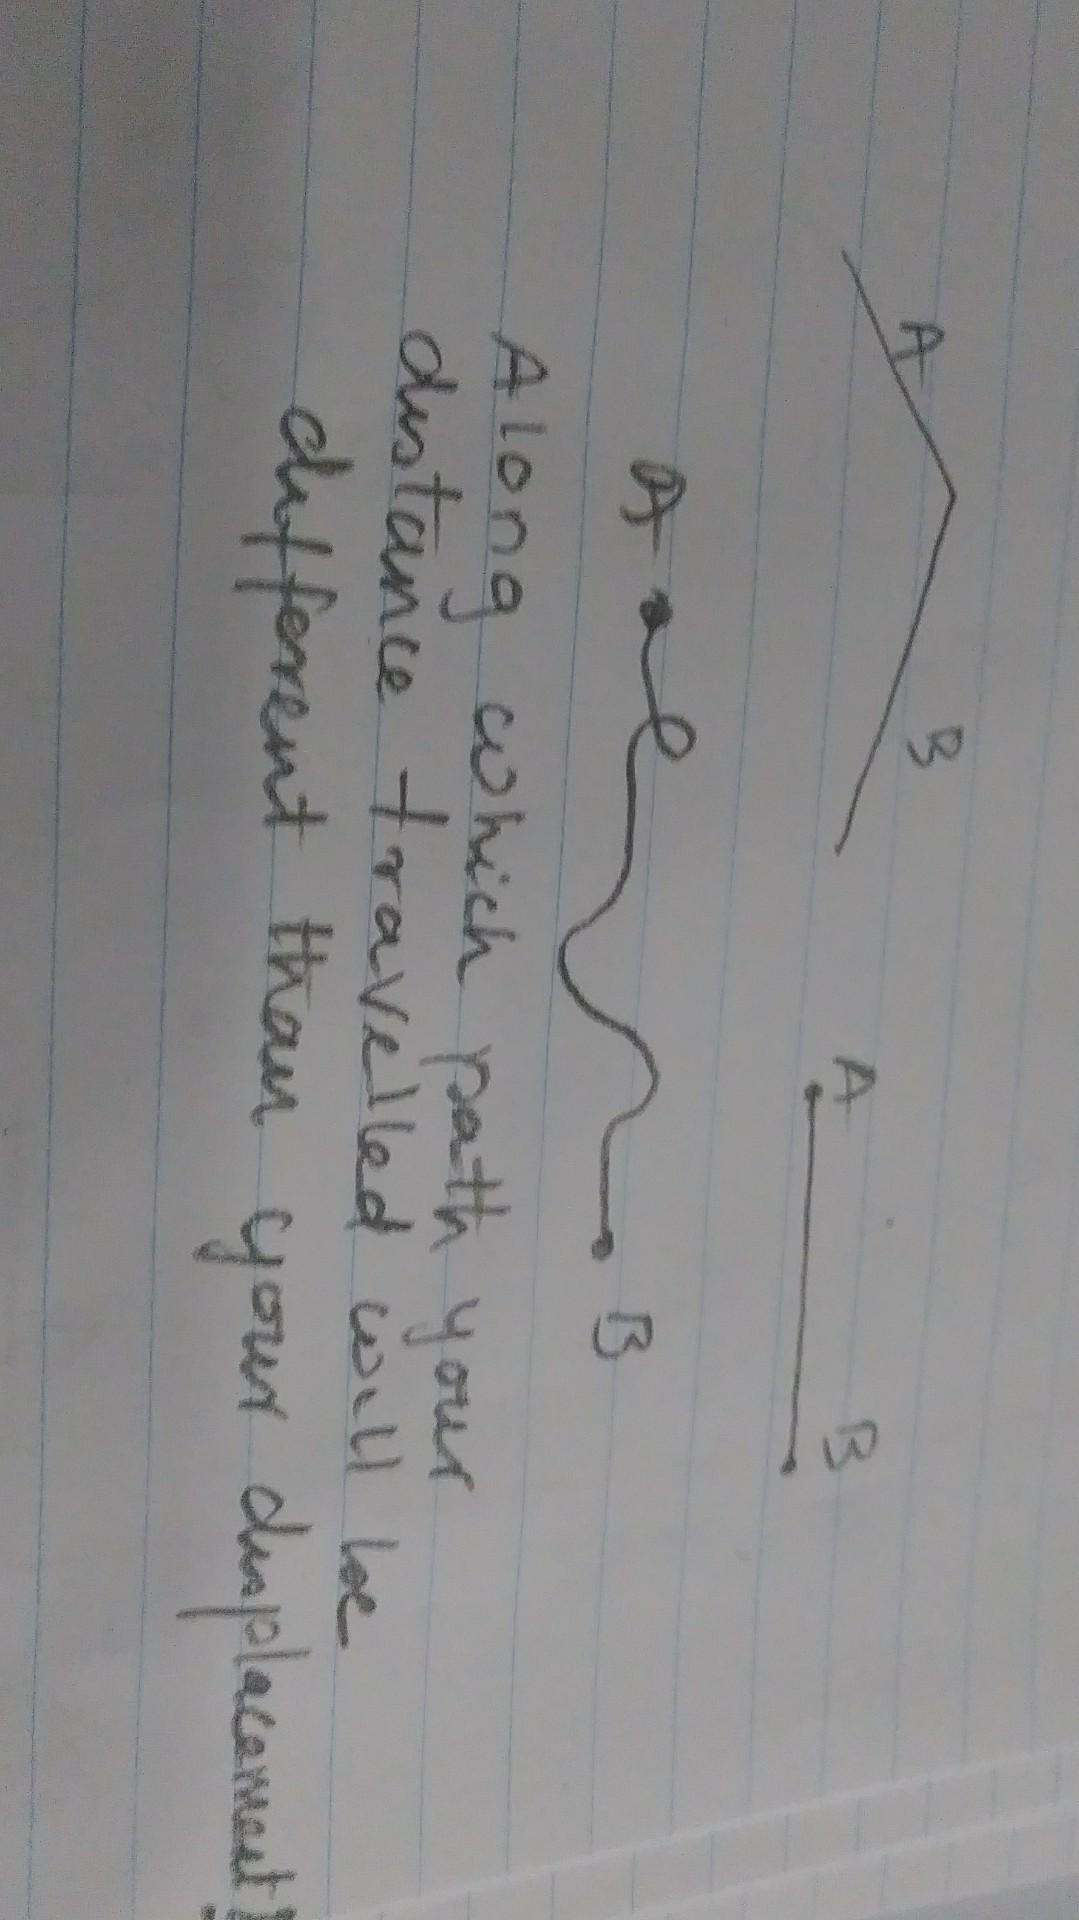 A B A B
A B
Along which path your
distance travelled will be
different than your displacement?